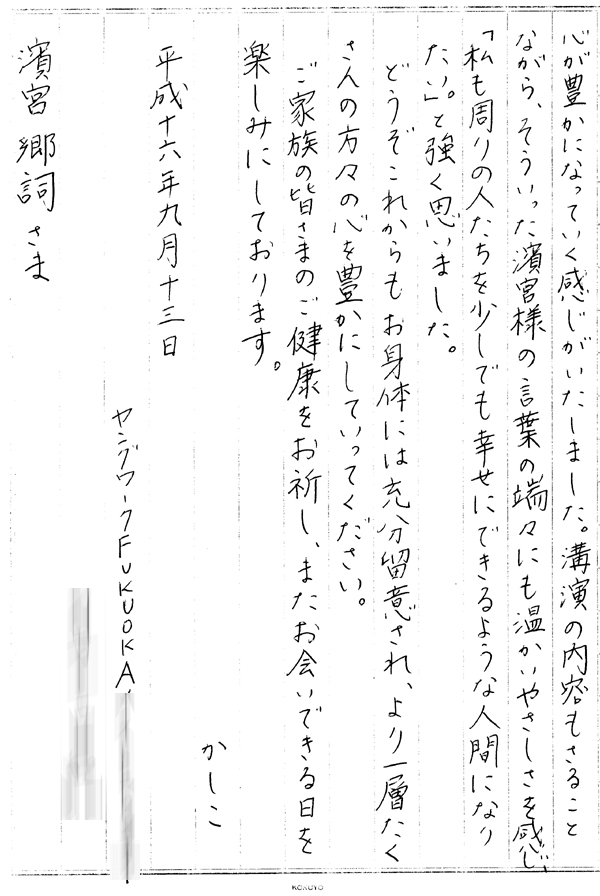 心が豊かになっていく感じがいたしました。溝演の内容もさること
ながら、そういった濱宮様の言葉の端々にも温かいやさしさを感じ、
「私も周りの人たちを少しでも幸せにできるような人間になり
たい」。と強く思いました。
どうぞこれからもお身体には充分留意され、より一層たく
さんの方々の心を豊かにしていってください。
ご家族の皆さまのご健康をお祈し、またお会いできる日を
楽しみにしております。
かしこ
平成十六年九月十三日
ヤングワークFUKUOKA
濱宮郷詞さま
KOKUYO